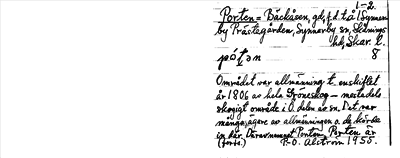 1-2.
Porten = Bäckåsen, gd, f.d. t. å l Synner
by Prästegården, Synnerby sn, Skånings
hd, Skar. l.
pó̜t̜ən 8
Området var allmänning t. enskiftet
år 1806 av hela Dröneskog – mestadels
skogigt område i Ö. delen av sn. Det var
många ägare av allmänningen o. de körde
in där. Därav namnet Porten. Porten är
(forts.) P-O. Alström 1955.